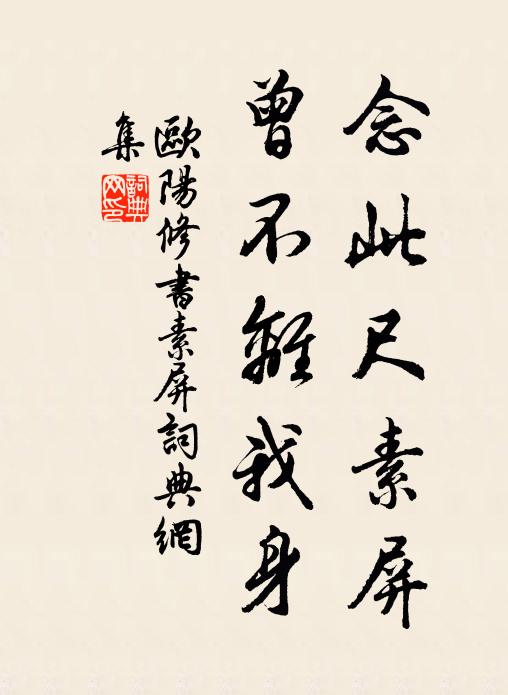 念此尺素屏
曾不離我身
歐陽修書素屏詞典網
集
詞典網印